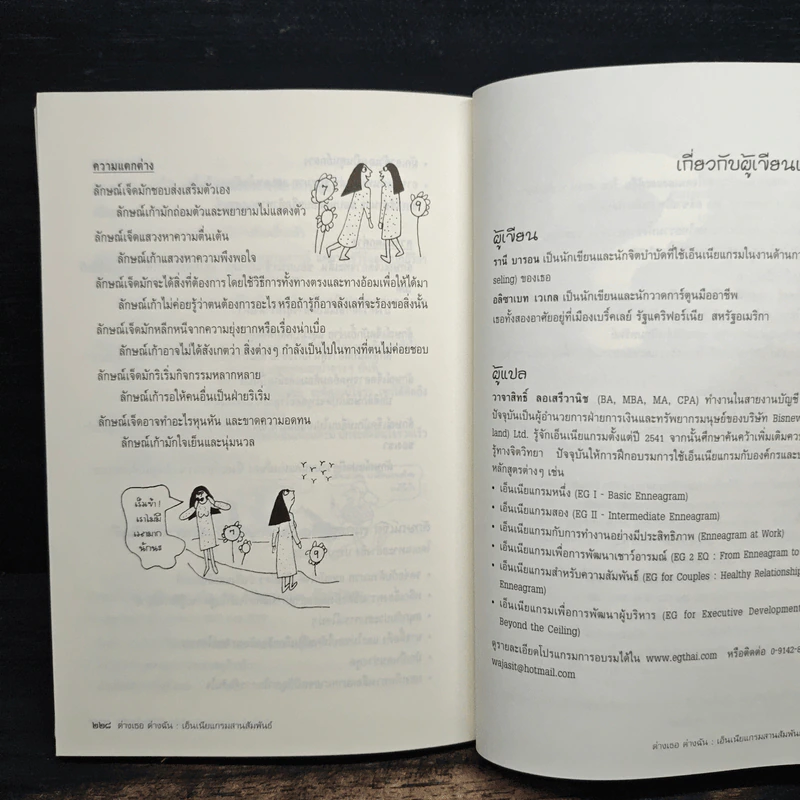 ความแตกต่าง
ลักษณ์เจ็ดมักชอบส่งเสริมตัวเอง
ลักษณ์เก้ามักถ่อมตัวและพยายามไม่แสดงตัว
ลักษณ์เจ็ดแสวงหาความตื่นเต้น
ลักษณ์เก้าแสวงหาความพึงพอใจ
ลักษณ์เจ็ดมักจะได้สิ่งที่ต้องการ โดยใช้วิธีการทั้งทางตรงและทางอ้อมเพื่อให้ได้มา
ลักษณ์เก้าไม่ค่อยรู้ว่าตนต้องการอะไร หรือถ้ารู้ก็อาจลังเลที่จะร้องขอสิ่งนั้น
ลักษณ์เจ็ดมักหลีกหนีจากความยุ่งยากหรือเรื่องน่าเบื่อ
ลักษณ์เก้าอาจไม่ได้สังเกตว่า สิ่งต่างๆ กำลังเป็นไปในทางที่ตนไม่ค่อยชอบ
ลักษณ์เจ็ดมักริเริ่มกิจกรรมหลากหลาย
ลักษณ์เก้ารอให้คนอื่นเป็นฝ่ายริเริ่ม
ลักษณ์เจ็ดอาจทำอะไรหุนหัน และขาดความอดทน
ลักษณ์เก้ามักใจเย็นและนุ่มนวล
7
9
เร็วเข้า!
เราไม่มี
เวลามาก
นักนะ
7
9
๒๒๘ ต่างเธอ ต่างฉัน : เอ็นเนียแกรมสานสัมพันธ์
เกี่ยวกับผู้เขียน
ผู้เขียน
รานี บารอน เป็นนักเขียนและนักจิตบำบัดที่ใช้เอ็นเนียแกรมในงานด้านการ
seling) ของเธอ
อลิซาเบท เวเกล เป็นนักเขียนและนักวาดการ์ตูนมืออาชีพ
เธอทั้งสองอาศัยอยู่ที่เมืองเบริ์คเลย์ รัฐแคริฟอร์เนีย สหรัฐอเมริกา
ผู้แปล
วาจาสิทธิ์ ลอเสรีวานิช (BA, MBA, MA, CPA) ทำงานในสายงานบัญชี
ปัจจุบันเป็นผู้อำนวยการฝ่ายการเงินและทรัพยากรมนุษย์ของบริษัท Bisnew
land) Ltd. รู้จักเอ็นเนียแกรมตั้งแต่ปี 2541 จากนั้นศึกษาค้นคว้าเพิ่มเติม
รู้ทางจิตวิทยา ปัจจุบันให้การฝึกอบรมการใช้เอ็นเนียแกรมกับองค์กรและ
หลักสูตรต่างๆ เช่น
• เอ็นเนียแกรมหนึ่ง (EG I - Basic Enneagram)
• เอ็นเนียแกรมสอง (EG II - Intermediate Enneagram)
• เอ็นเนียแกรมกับการทำงานอย่างมีประสิทธิภาพ (Enneagram at Work)
• เอ็นเนียแกรมเพื่อการพัฒนาเชาว์อารมณ์ (EG 2 EQ : From Enneagram to
• เอ็นเนียแกรมสำหรับความสัมพันธ์ (EG for Couples : Healthy Relationship
Enneagram)
• เอ็นเนียแกรมเพื่อการพัฒนาผู้บริหาร (EG for Executive Development
Beyond the Ceiling)
ดูรายละเอียดโปรแกรมการอบรมได้ใน www.egthai.com หรือติดต่อ 0-9142-8
wajasit@hotmail.com
ต่างเธอ ต่างฉัน : เอ็นเนียแกรมสานสัมพันธ์